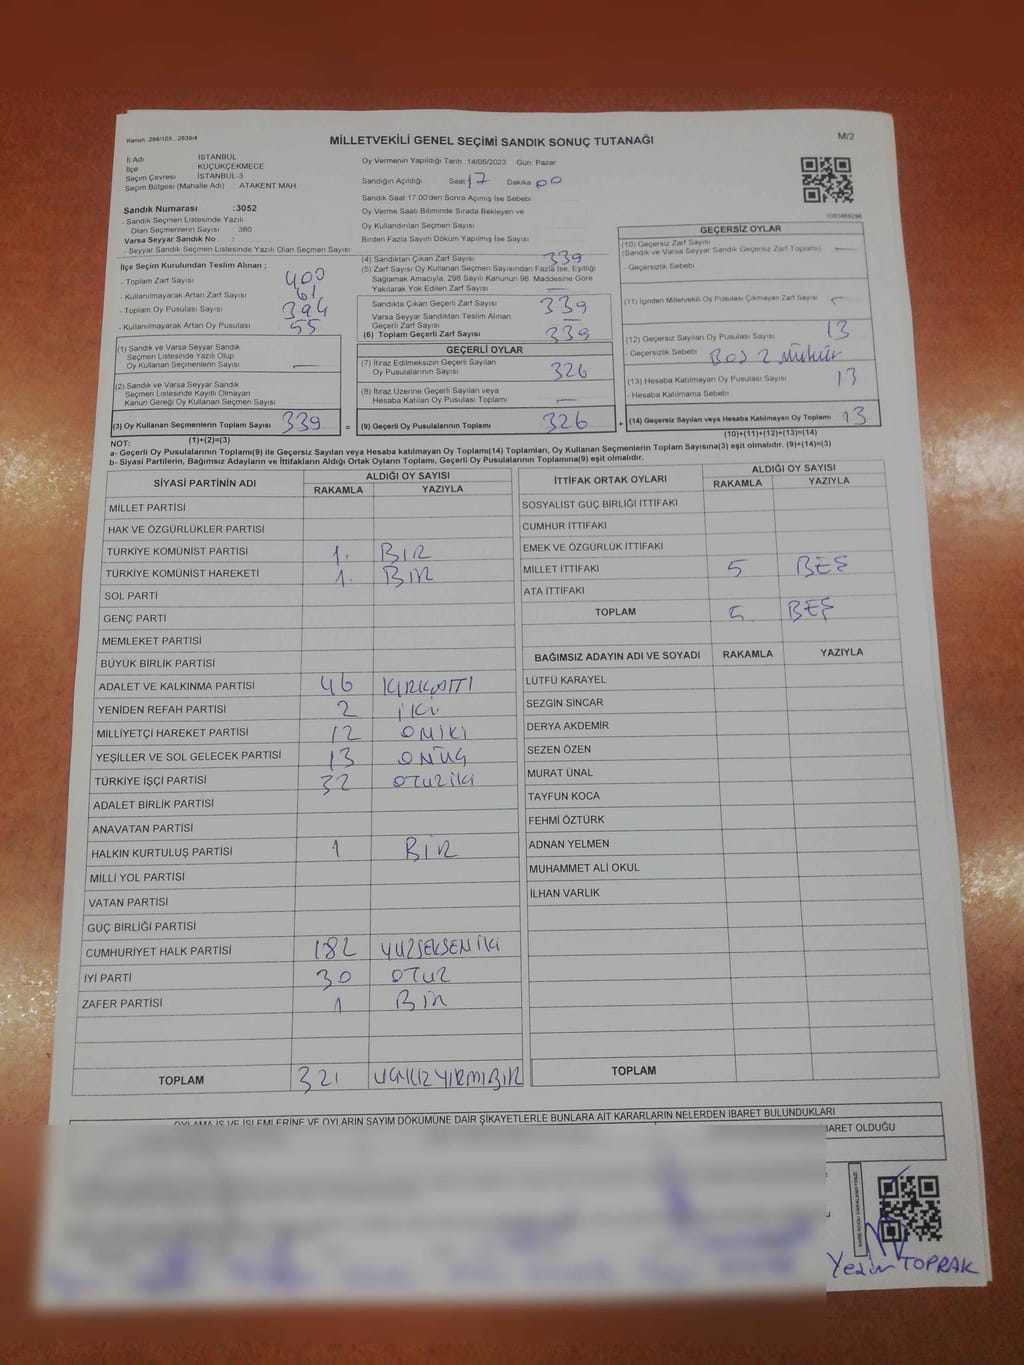 Kanun: 298/105 , 2839/4
MİLLETVEKİLİ GENEL SEÇİMİ SANDIK SONUÇ TUTANAĞI
M/2
İl Adı : İSTANBUL
İlçe : KÜÇÜKÇEKMECE
Seçim Çevresi : İSTANBUL-3
Seçim Bölgesi (Mahalle Adı) : ATAKENT MAH
Sandık Numarası :3052
- Sandık Seçmen Listesinde Yazılı
Olan Seçmenlerin Sayısı : 380
Varsa Seyyar Sandık No :
- Seyyar Sandık Seçmen Listesinde Yazılı Olan Seçmen Sayısı:
İlçe Seçim Kurulundan Teslim Alınan ;
- Toplam Zarf Sayısı 400
- Kullanılmayarak Artan Zarf Sayısı 61
- Toplam Oy Pusulası Sayısı 394
- Kullanılmayarak Artan Oy Pusulası 55
(1) Sandık ve Varsa Seyyar Sandık
Seçmen Listesinde Yazılı Olup
Oy Kullanan Seçmenlerin Sayısı —
(2) Sandık ve Varsa Seyyar Sandık
Seçmen Listesinde Kayıtlı Olmayan
Kanun Gereği Oy Kullanan Seçmen Sayısı
(3) Oy Kullanan Seçmenlerin Toplam Sayısı 339 =
(1)+(2)=(3)
Oy Vermenin Yapıldığı Tarih :14/05/2023 Gün: Pazar
Sandığın Açıldığı Saat 17 Dakika 00
Sandık Saat 17:00'den Sonra Açmış İse Sebebi
Oy Verme Saati Bitiminde Sırada Bekleyen ve
Oy Kullandırılan Seçmen Sayısı
Birden Fazla Sayım Döküm Yapılmış İse Sayısı
(4) Sandıktan Çıkan Zarf Sayısı 339
(5) Zarf Sayısı Oy Kullanan Seçmen Sayısından Fazla İse, Eşitliği
Sağlamak Amacıyla, 298 Sayılı Kanunun 98. Maddesine Göre
Yakılarak Yok Edilen Zarf Sayısı —
Sandıkta Çıkan Geçerli Zarf Sayısı 339
Varsa Seyyar Sandıktan Teslim Alınan
Geçerli Zarf Sayısı —
(6) Toplam Geçerli Zarf Sayısı 339
GEÇERLİ OYLAR
(7) İtiraz Edilmeksizin Geçerli Sayılan
Oy Pusulalarının Sayısı 326
(8) İtiraz Üzerine Geçerli Sayılan veya
Hesaba Katılan Oy Pusulası Toplamı —
(9) Geçerli Oy Pusulalarının Toplamı 326 +
1083469298
GEÇERSİZ OYLAR
(10) Geçersiz Zarf Sayısı
(Sandık ve Varsa Seyyar Sandık Geçersiz Zarf Toplamı) —
- Geçersizlik Sebebi
(11) İçinden Milletvekili Oy Pusulası Çıkmayan Zarf Sayısı
(12) Geçersiz Sayılan Oy Pusulası Sayısı 13
- Geçersizlik Sebebi Boş 2 Mühür
(13) Hesaba Katılmayan Oy Pusulası Sayısı 13
- Hesaba Katılmama Sebebi
(14) Geçersiz Sayılan veya Hesaba Katılmayan Oy Toplamı 13
(10)+(11)+(12)+(13)=(14)
NOT:
a- Geçerli Oy Pusulalarının Toplamı(9) ile Geçersiz Sayılan veya Hesaba katılmayan Oy Toplamı(14) Toplamları, Oy Kullanan Seçmenlerin Toplam Sayısına(3) eşit olmalıdır. (9)+(14)=(3)
b- Siyasi Partilerin, Bağımsız Adayların ve İttifakların Aldığı Ortak Oyların Toplamı, Geçerli Oy Pusulalarının Toplamına(9) eşit olmalıdır.
SİYASİ PARTİNİN ADI ALDIĞI OY SAYISI
RAKAMLA YAZIYLA
MİLLET PARTİSİ
HAK VE ÖZGÜRLÜKLER PARTİSİ
TÜRKİYE KOMÜNİST PARTİSİ 1. BİR
TÜRKİYE KOMÜNİST HAREKETİ 1. BİR
SOL PARTİ
GENÇ PARTİ
MEMLEKET PARTİSİ
BÜYÜK BİRLİK PARTİSİ
ADALET VE KALKINMA PARTİSİ 46 KIRKALTI
YENİDEN REFAH PARTİSİ 2 İKİ
MİLLİYETÇİ HAREKET PARTİSİ 12 ONİKİ
YEŞİLLER VE SOL GELECEK PARTİSİ 13 ONÜÇ
TÜRKİYE İŞÇİ PARTİSİ 32 OTUZİKİ
ADALET BİRLİK PARTİSİ
ANAVATAN PARTİSİ
HALKIN KURTULUŞ PARTİSİ 1 BİR
MİLLİ YOL PARTİSİ
VATAN PARTİSİ
GÜÇ BİRLİĞİ PARTİSİ
CUMHURİYET HALK PARTİSİ 182 YÜZSEKSENİKİ
İYİ PARTİ 30 OTUZ
ZAFER PARTİSİ 1 BİR
TOPLAM 321 ÜÇYÜZYİRMİBİR
İTTİFAK ORTAK OYLARI ALDIĞI OY SAYISI
RAKAMLA YAZIYLA
SOSYALİST GÜÇ BİRLİĞİ İTTİFAKI
CUMHUR İTTİFAKI
EMEK VE ÖZGÜRLÜK İTTİFAKI
MİLLET İTTİFAKI 5 BEŞ
ATA İTTİFAKI
TOPLAM 5 BEŞ
BAĞIMSIZ ADAYIN ADI VE SOYADI RAKAMLA YAZIYLA
LÜTFÜ KARAYEL
SEZGİN SİNCAR
DERYA AKDEMİR
SEZEN ÖZEN
MURAT ÜNAL
TAYFUN KOCA
FEHMİ ÖZTÜRK
ADNAN YELMEN
MUHAMMET ALİ OKUL
İLHAN VARLIK
TOPLAM
OYLAMA İŞ VE İŞLEMLERİNE VE OYLARIN SAYIM DÖKÜMÜNE DAİR ŞİKAYETLERLE BUNLARA AİT KARARLARIN NELERDEN İBARET BULUNDUKLARI
BARET OLDUĞU
TOPRAK